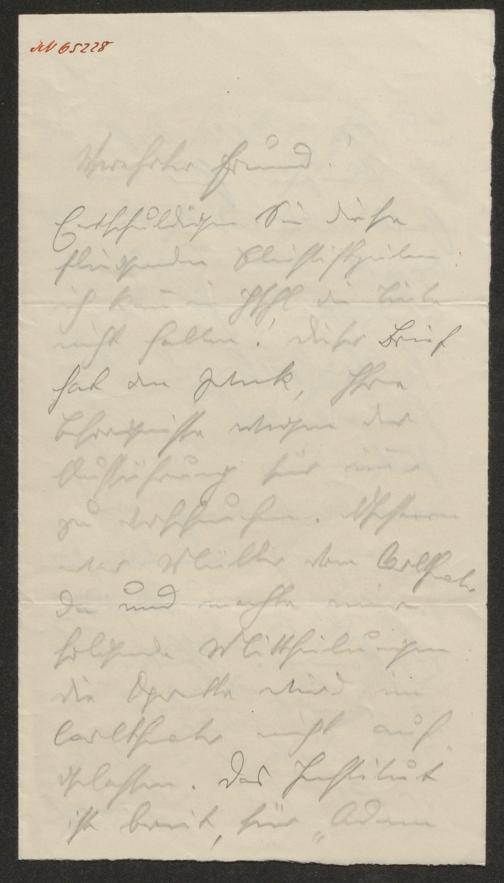 AN 65228
Verehrter Freund!
Entschuldigen Sie diese
fliegenden Bleistiftzeilen
ich kann im Stuhl die Tinte
nicht halten! Dieser Brief
hat den Zweck, Ihre
Besorgnisse wegen der
Aufführung für
zu verscheuchen. Gestern
war Müller vom Carltheater
da und machte mir
folgende Mittheilungen
die Operette wird im
Carltheater nicht auf
gelassen. Das Institut
ist bereit, für "Adam